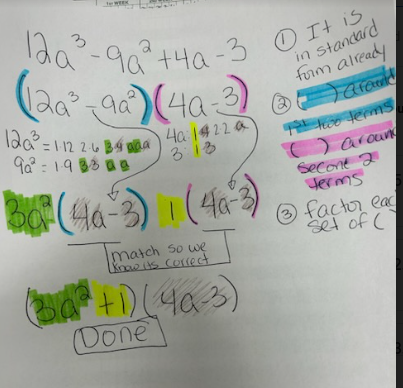 12a³ - 9a² + 4a - 3
(12a³ - 9a²) (4a - 3)
12a³ = 1·12 2·6 3·4 a a a
9a² = 1·9 3·3 a a
4a 1 4 2 2 a
3 1 3
3a² (4a - 3) 1 (4a - 3)
match so we
know its correct
(3a² + 1) (4a - 3)
Done
① It is
in standard
form already
② ( ) around
1st two terms
( ) around
second 2
terms
③ factor eac
set of (